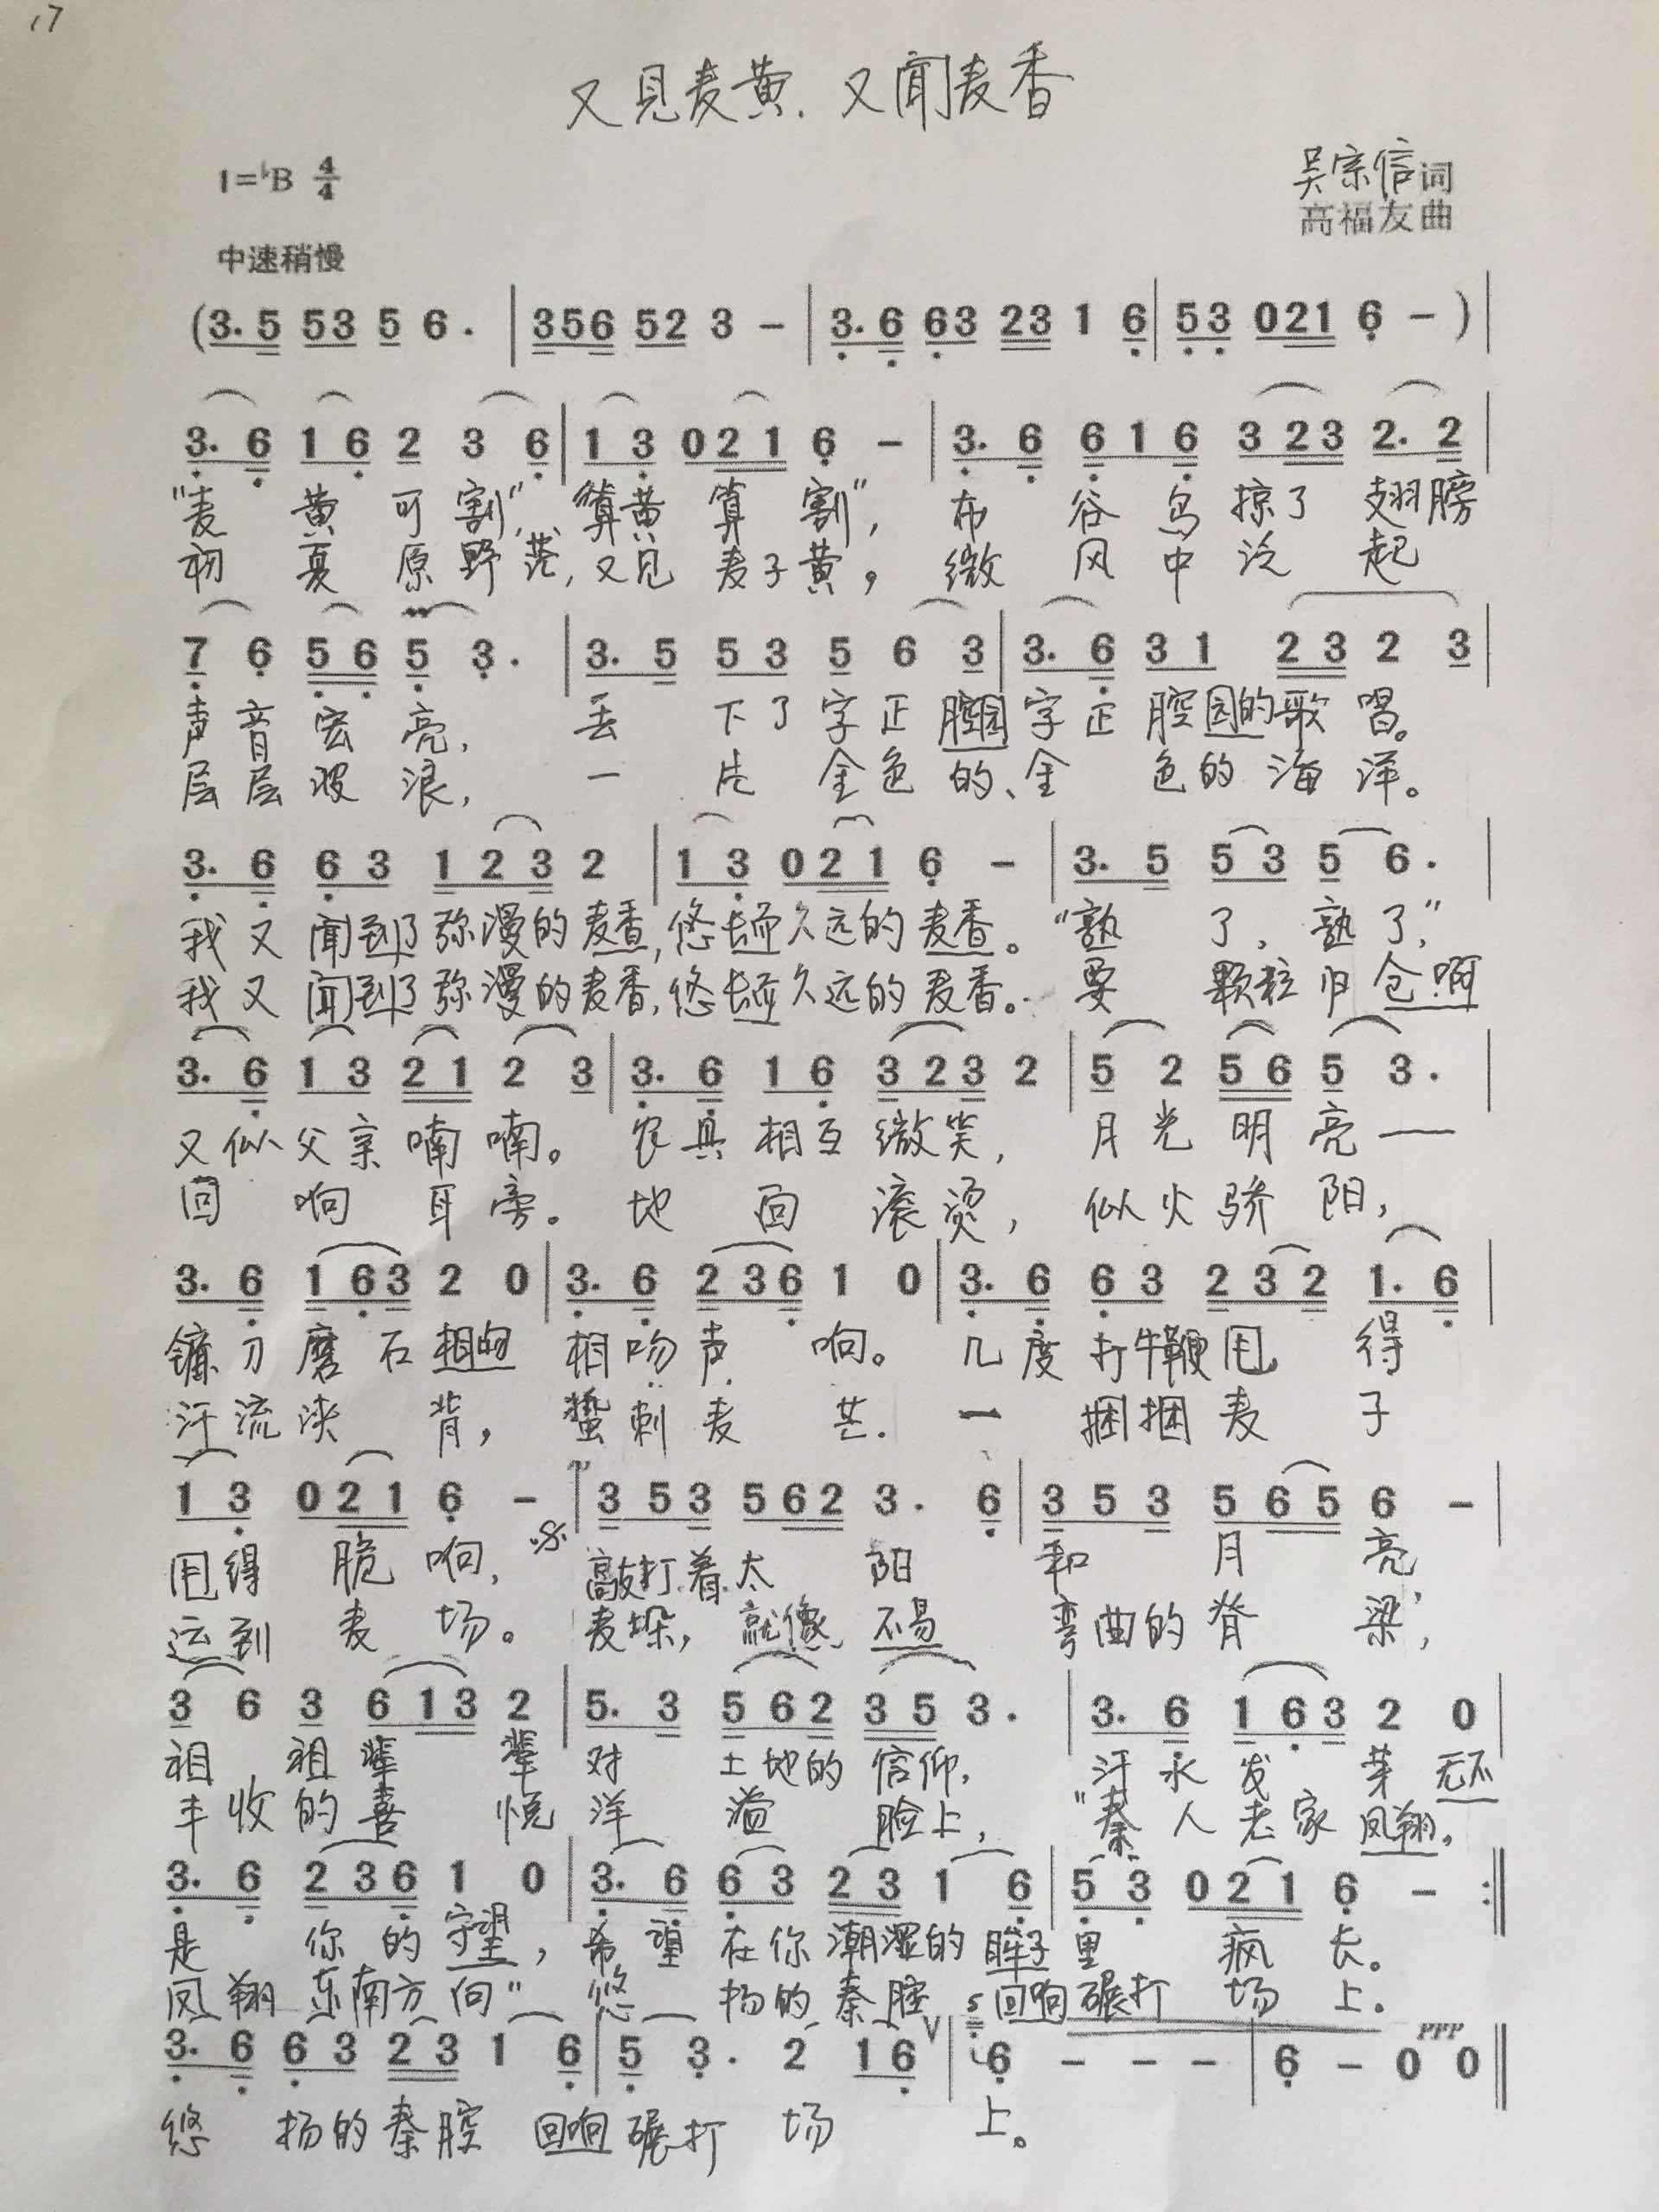 17
又见麦黄.又闻麦香
1=♭B 4/4
吴宗信词
高福友曲
中速稍慢
(3. 5 5 3 5 6. | 3 5 6 5 2 3 - | 3. 6 6 3 2 3 1 6 | 5 3 0 2 1 6 - ) |
3. 6 1 6 2 3 6 | 1 3 0 2 1 6 - | 3. 6 6 1 6 3 2 3 2. 2 |
"麦 黄 可 割", "算黄 算 割", 布 谷 鸟 掠了 翅膀
初 夏 原 野 茫, 又见 麦子黄, 微 风 中 泛 起
7 6 5 6 5 3. | 3. 5 5 3 5 6 3 | 3. 6 3 1 2 3 2 3 |
声 音 宏 亮, 丢 下了 字 正 腔圆 字 正 腔圆的歌 唱。
层 层 波 浪, 一 片 金色 的、金 色的 海 洋。
3. 6 6 3 1 2 3 2 | 1 3 0 2 1 6 - | 3. 5 5 3 5 6. |
我又 闻到了弥漫的麦香,悠长而久远的麦香。"熟 了, 熟 了,"
我又 闻到了弥漫的麦香,悠长而久远的麦香。要 颗粒 归 仓啊
3. 6 1 3 2 1 2 3 | 3. 6 1 6 3 2 3 2 | 5 2 5 6 5 3. |
又似父亲喃喃。 农具相互微笑, 月光明亮——
回 响 耳旁。 地 面 滚烫, 似火骄阳,
3. 6 1 6 3 2 0 | 3. 6 2 3 6 1 0 | 3. 6 6 3 2 3 2 1. 6 |
镰刀磨石相吻 相吻声 响。 几度打牛鞭甩 得
汗流浃 背, 蜇刺麦 芒. 一 捆捆麦 子
1 3 0 2 1 6 - | 3 5 3 5 6 2 3. 6 | 3 5 3 5 6 5 6 - |
甩得 脆 响, 敲打着太 阳 和 月 亮
运到 麦 场。 麦垛,就像 不易 弯曲的脊 梁,
3 6 3 6 1 3 2 | 5. 3 5 6 2 3 5 3. | 3. 6 1 6 3 2 0 |
祖 祖辈 辈 对 土地的信仰, 汗水发 芽 无不
丰收的喜 悦 洋 溢 脸上, "秦人老家 凤翔,
3. 6 2 3 6 1 0 | 3. 6 6 3 2 3 1 6 | 5 3 0 2 1 6 - :‖
是 你的守望, 希望在你潮湿的眸子里 疯 长。
凤翔东南方向" 悠 扬的秦腔 回响碾打 场 上。
3. 6 6 3 2 3 1 6 | 5 3. 2 1 6 V | 5 6 - - - | 6 - 0 0 ‖
ppp
悠 扬的秦腔 回响碾打 场 上。